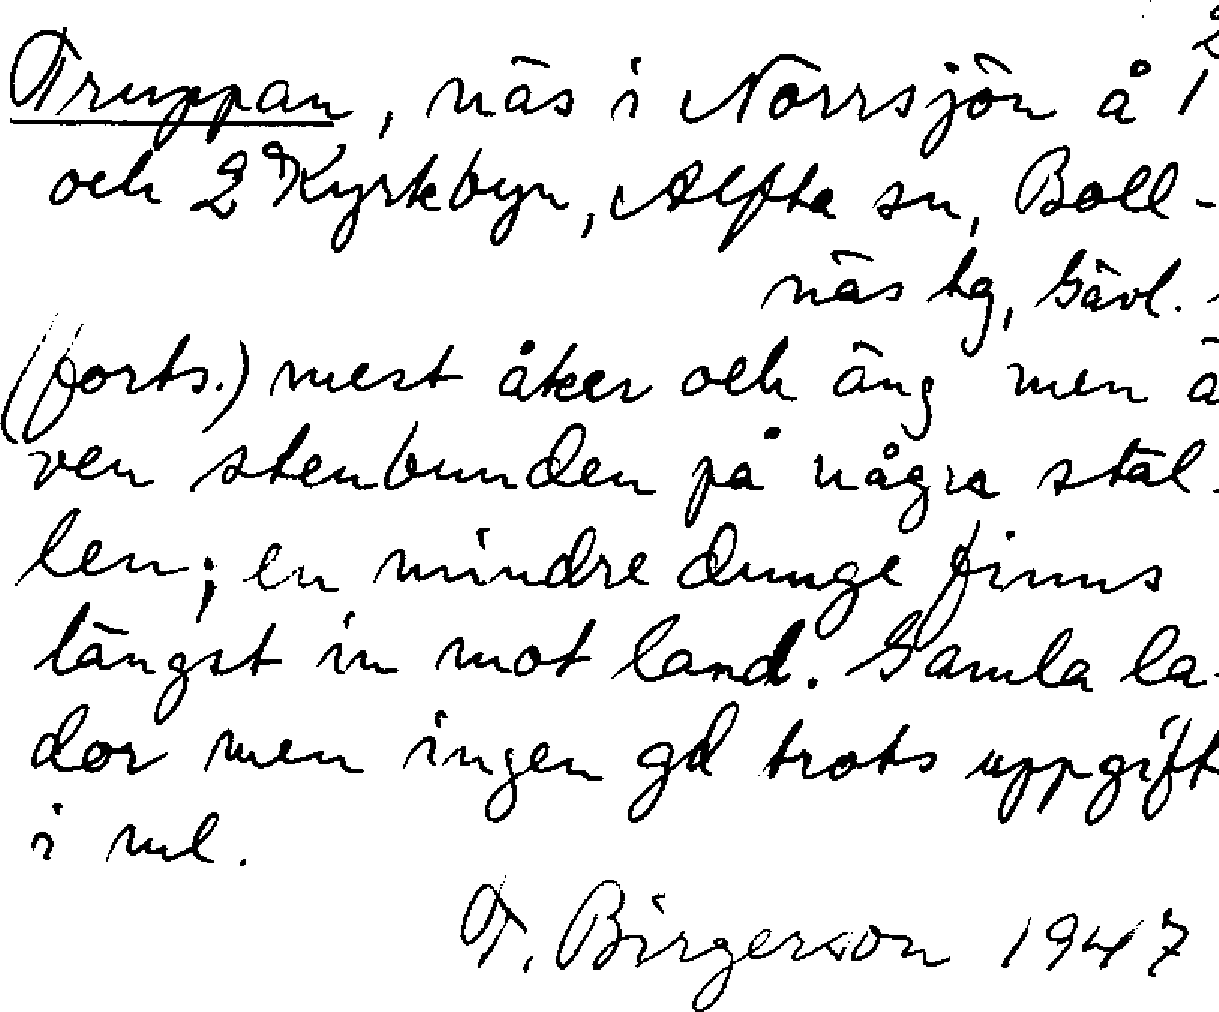 2
Truppan, näs i Norrsjön å 1
och 2 Kyrkbyn, Alfta sn, Boll-
näs tg, Gävl.
(forts.) mest åker och äng men ä
ven stenbunden på några stäl-
len; en mindre dunge finns
längst in mot land. Gamla la-
dor men ingen gd trots uppgift
i ml.
T. Birgerson 1947